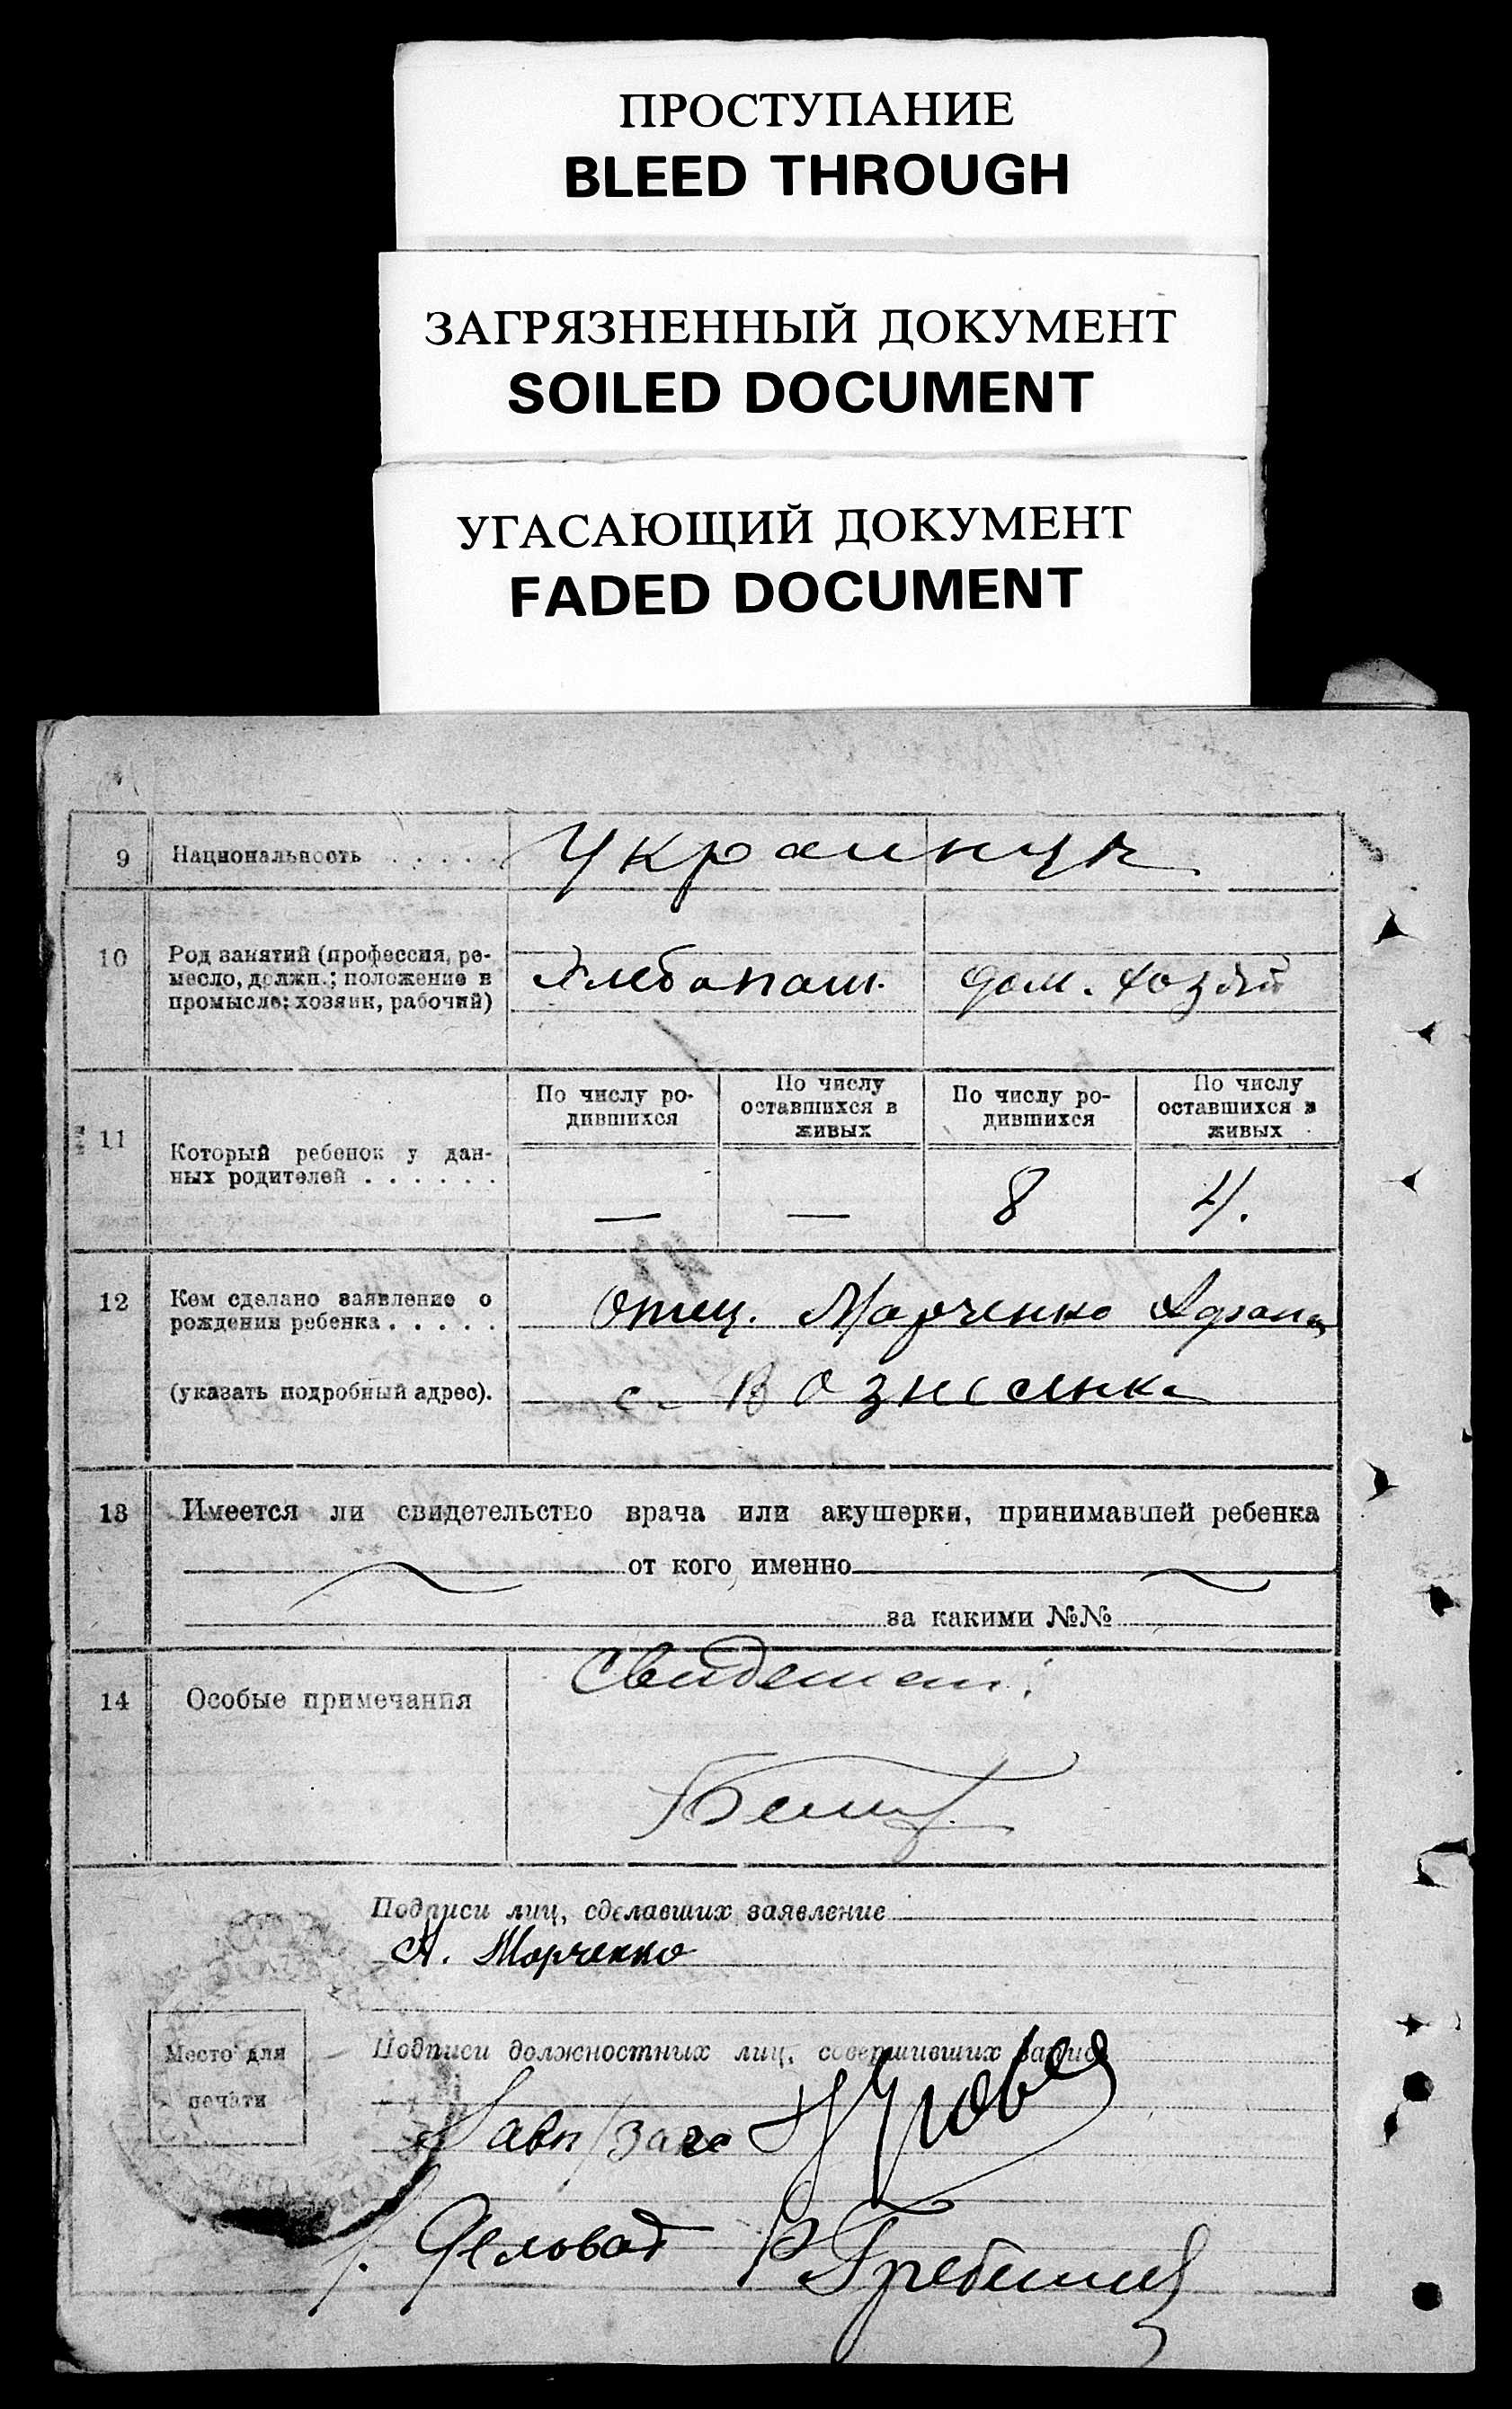 ПРОСТУПАНИЕ
BLEED THROUGH
ЗАГРЯЗНЕННЫЙ ДОКУМЕНТ
SOILED DOCUMENT
УГАСАЮЩИЙ ДОКУМЕНТ
FADED DOCUMENT
9 Национальность . . . . . Украинцы
10 Род занятий (профессия, ре-
месло, должн.; положение в
промысле: хозяин, рабочий)
Хлебопаш. дом. хозяй
По числу ро-
дившихся
По числу
оставшихся в
живых
По числу ро-
дившихся
По числу
оставшихся в
живых
11 Который ребенок у дан-
ных родителей . . . . . .
— — 8 4.
12 Кем сделано заявление о
рождении ребенка . . . . .
Отец. Марченко
(указать подробный адрес).
с. Вознесенка
13 Имеется ли свидетельство врача или акушерки, принимавшей ребенка
от кого именно
за какими №№
14 Особые примечания
Свидетел:
Подписи лиц, сделавших заявление
А. Марченко
Место для
печати
Подписи должностных лиц, совершивших запись
Завп/загс
Деловод